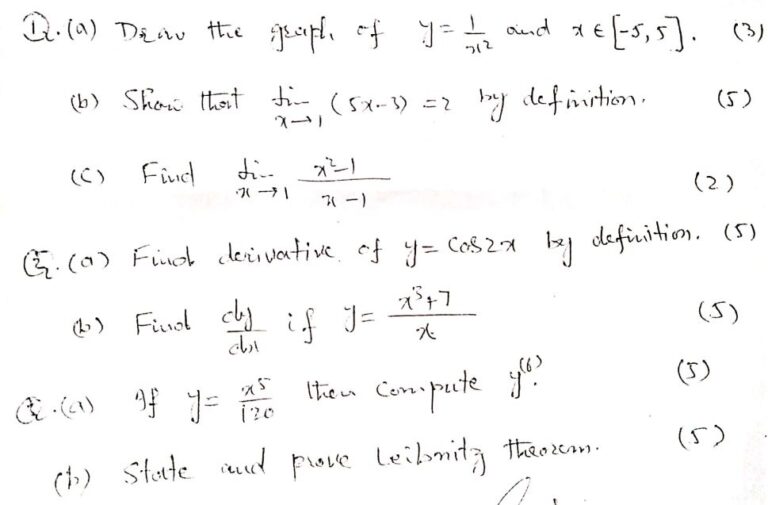 Q.(a) Draw the graph of y = 1/x² and x ∈ [-5, 5]. (3)
(b) Show that lim x→1 (5x-3) = 2 by definition. (5)
(c) Find lim x→1 x²-1 / x-1 (2)
Q.(a) Find derivative of y = cos2x by definition. (5)
(b) Find dy/dx if y = x³+7 / x (5)
Q.(a) If y = x⁵/120 then compute y⁽⁶⁾? (5)
(b) State and prove Leibnitz Theorem. (5)